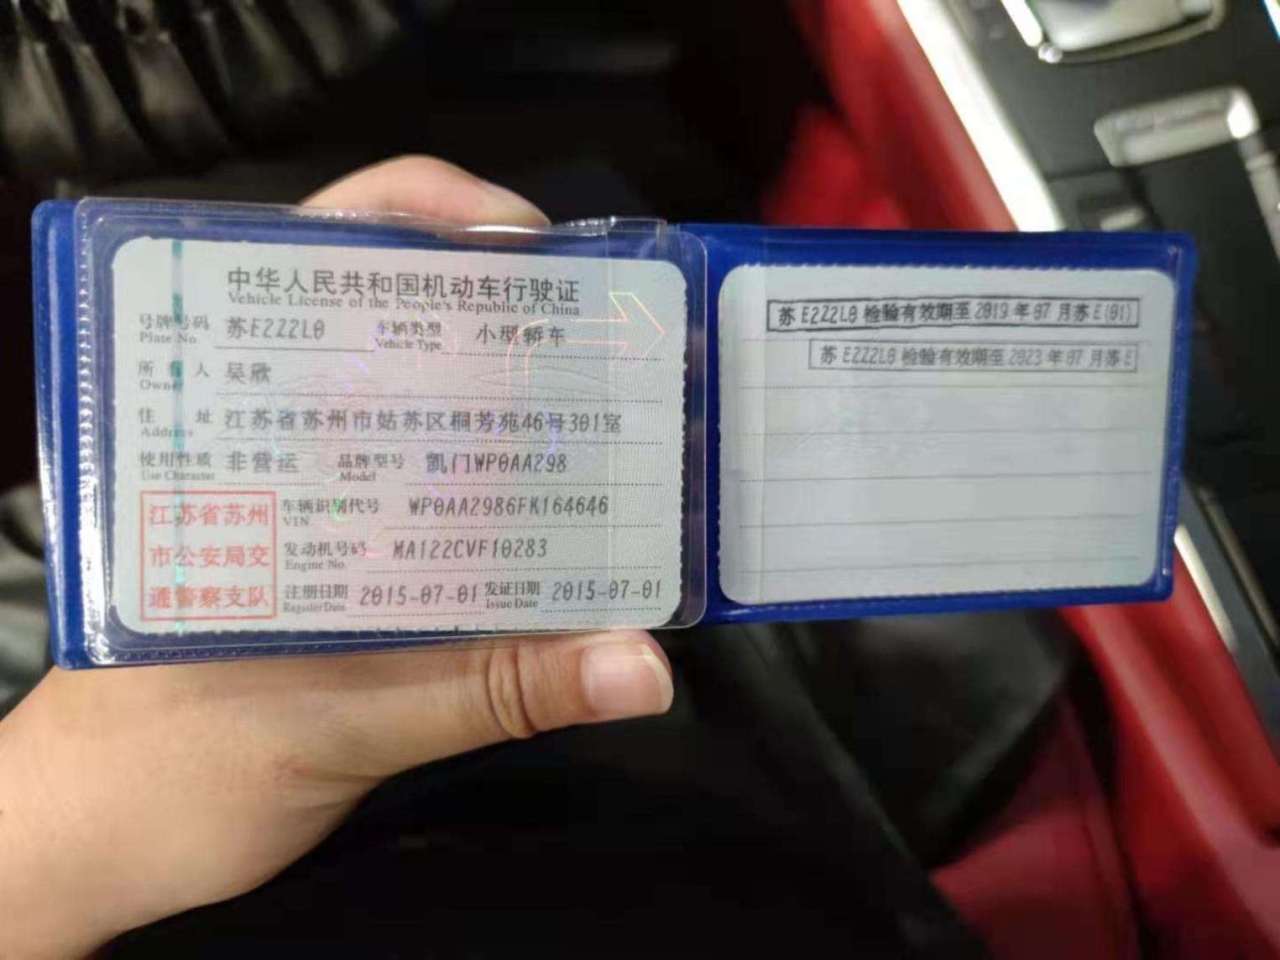 中华人民共和国机动车行驶证
Vehicle License of the People's Republic of China
号牌号码 苏E2Z2L0 车辆类型 小型轿车
Plate No. Vehicle Type
所有人 吴欣
Owner
住址 江苏省苏州市姑苏区桐芳苑46号301室
Address
使用性质 非营运 品牌型号 凯门WP0AA298
Use Character Model
车辆识别代号 WP0AA2986FK164646
VIN
发动机号码 MA122CVF10283
Engine No.
注册日期 2015-07-01 发证日期 2015-07-01
Register Date Issue Date
江苏省苏州
市公安局交
通警察支队
苏E2Z2L0 检验有效期至2019年07月苏E(01)
苏E2Z2L0 检验有效期至2023年07月苏E